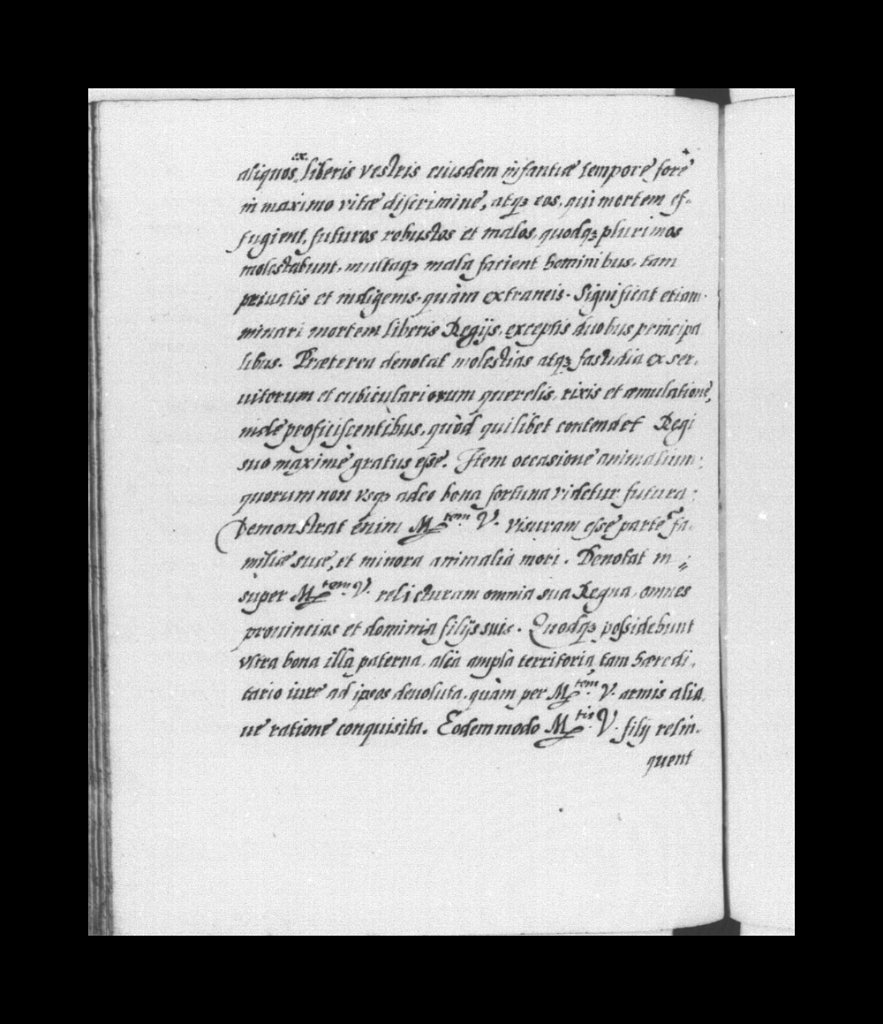 aliquos ex liberis vestris eiusdem infantiæ tempore fore
in maximo vitæ discrimine, atqꝫ eos, qui mortem ef-
fugient, futuros robustos et malos, quodqꝫ plurimos
molestabunt, multaqꝫ mala facient hominibus, tam
priuatis et indigenis, quàm extraneis. Significat etiam
minari mortem liberis Regijs, exceptis duobus principa
libus. Præterea denotat molestias atqꝫ fastidia ex ser,
uitorum et cubiculariorum querelis, rixis et æmulatione,
inde proficiscentibus, quòd quilibet contendet Regi
suo maximè gratus esse. Item occasione animalium,
quorum non vsqꝫ adeo bona fortuna videtur futura:
Demonstrat enim M.tem V. visuram esse parte fa-
miliæ suæ, et minora animalia mori. Denotat in
super M.tem V. relicturam omnia sua Regna, omnes
prouincias et dominia filijs suis. Quodqꝫ possidebunt
vltra bona illa paterna, alia ampla territoria, tam hæredi,
tario iure ad ipsos deuoluta, quàm per M.tem V. armis alia,
ue ratione conquisita. Eodem modo M.tis V. filij relin-
quent